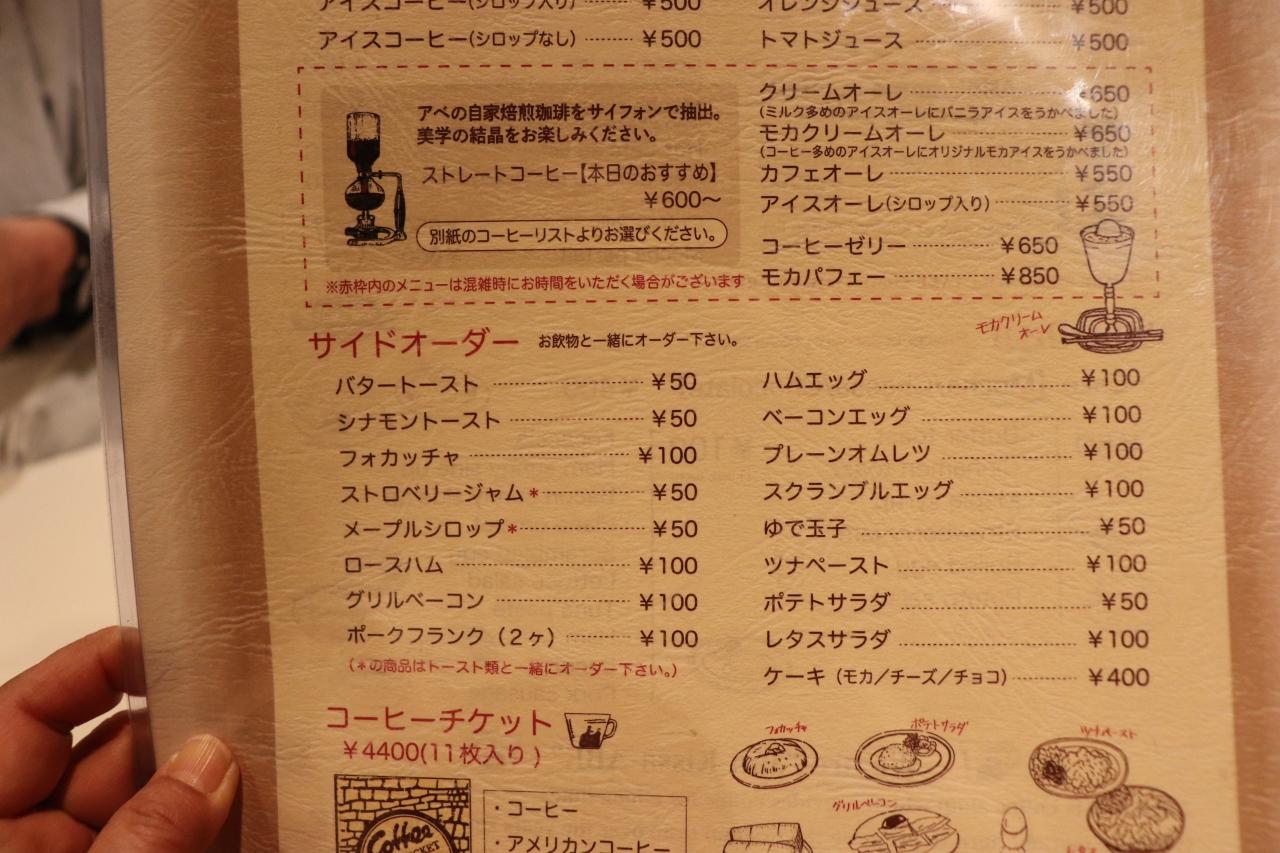 アイスコーヒー(シロップ入り) ¥500
アイスコーヒー(シロップなし) ¥500
オレンジジュース ¥500
トマトジュース ¥500
アベの自家焙煎珈琲をサイフォンで抽出。
美学の結晶をお楽しみください。
ストレートコーヒー【本日のおすすめ】
¥600〜
別紙のコーヒーリストよりお選びください。
※赤枠内のメニューは混雑時にお時間をいただく場合がございます
クリームオーレ ¥650
(ミルク多めのアイスオーレにバニラアイスをうかべました)
モカクリームオーレ ¥650
(コーヒー多めのアイスオーレにオリジナルモカアイスをうかべました)
カフェオーレ ¥550
アイスオーレ(シロップ入り) ¥550
コーヒーゼリー ¥650
モカパフェー ¥850
モカクリーム
オーレ
サイドオーダー お飲物と一緒にオーダー下さい。
バタートースト ¥50
シナモントースト ¥50
フォカッチャ ¥100
ストロベリージャム* ¥50
メープルシロップ* ¥50
ロースハム ¥100
グリルベーコン ¥100
ポークフランク(2ヶ) ¥100
(*の商品はトースト類と一緒にオーダー下さい。)
ハムエッグ ¥100
ベーコンエッグ ¥100
プレーンオムレツ ¥100
スクランブルエッグ ¥100
ゆで玉子 ¥50
ツナペースト ¥100
ポテトサラダ ¥50
レタスサラダ ¥100
ケーキ(モカ/チーズ/チョコ) ¥400
コーヒーチケット
¥4400(11枚入り)
Coffee
・コーヒー
・アメリカンコーヒー
フォカッチャ
ポテトサラダ
ツナペースト
グリルベーコン